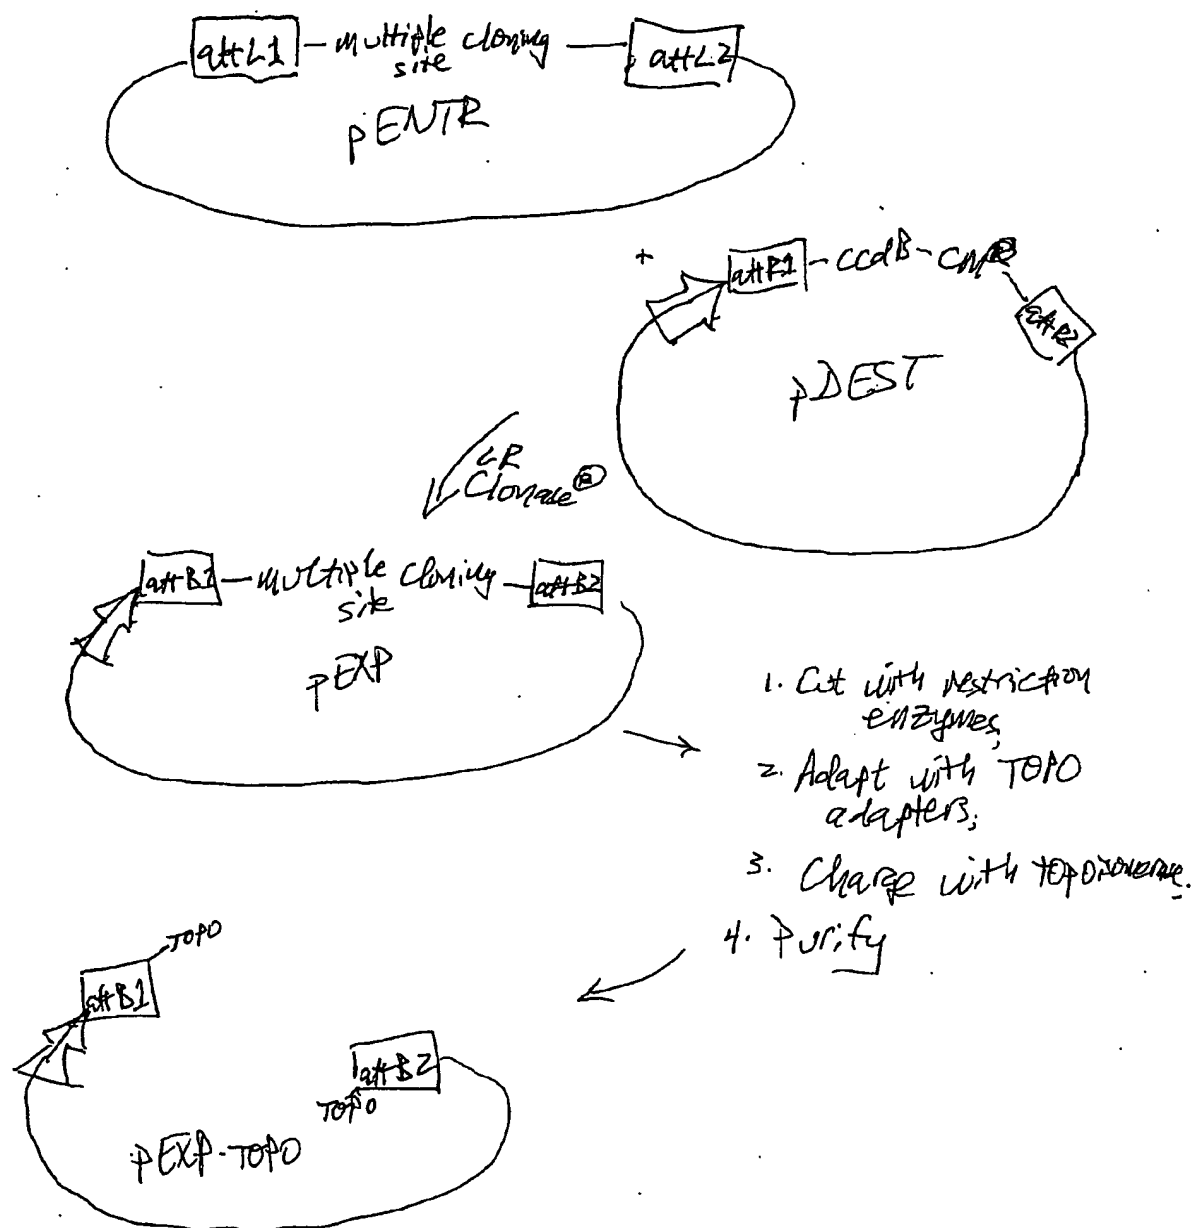 attL1 — multiple cloning — attL2
site
pENTR
+
attR1 - ccdB - CMR
attR2
pDEST
LR
Clonase®
attB1 — multiple cloning — attB2
site
pEXP
1. Cut with restriction
enzymes;
2. Adapt with TOPO
adapters;
3. Charge with topoisomerase.
4. Purify
TOPO
attB1
attB2
TOPO
pEXP-TOPO